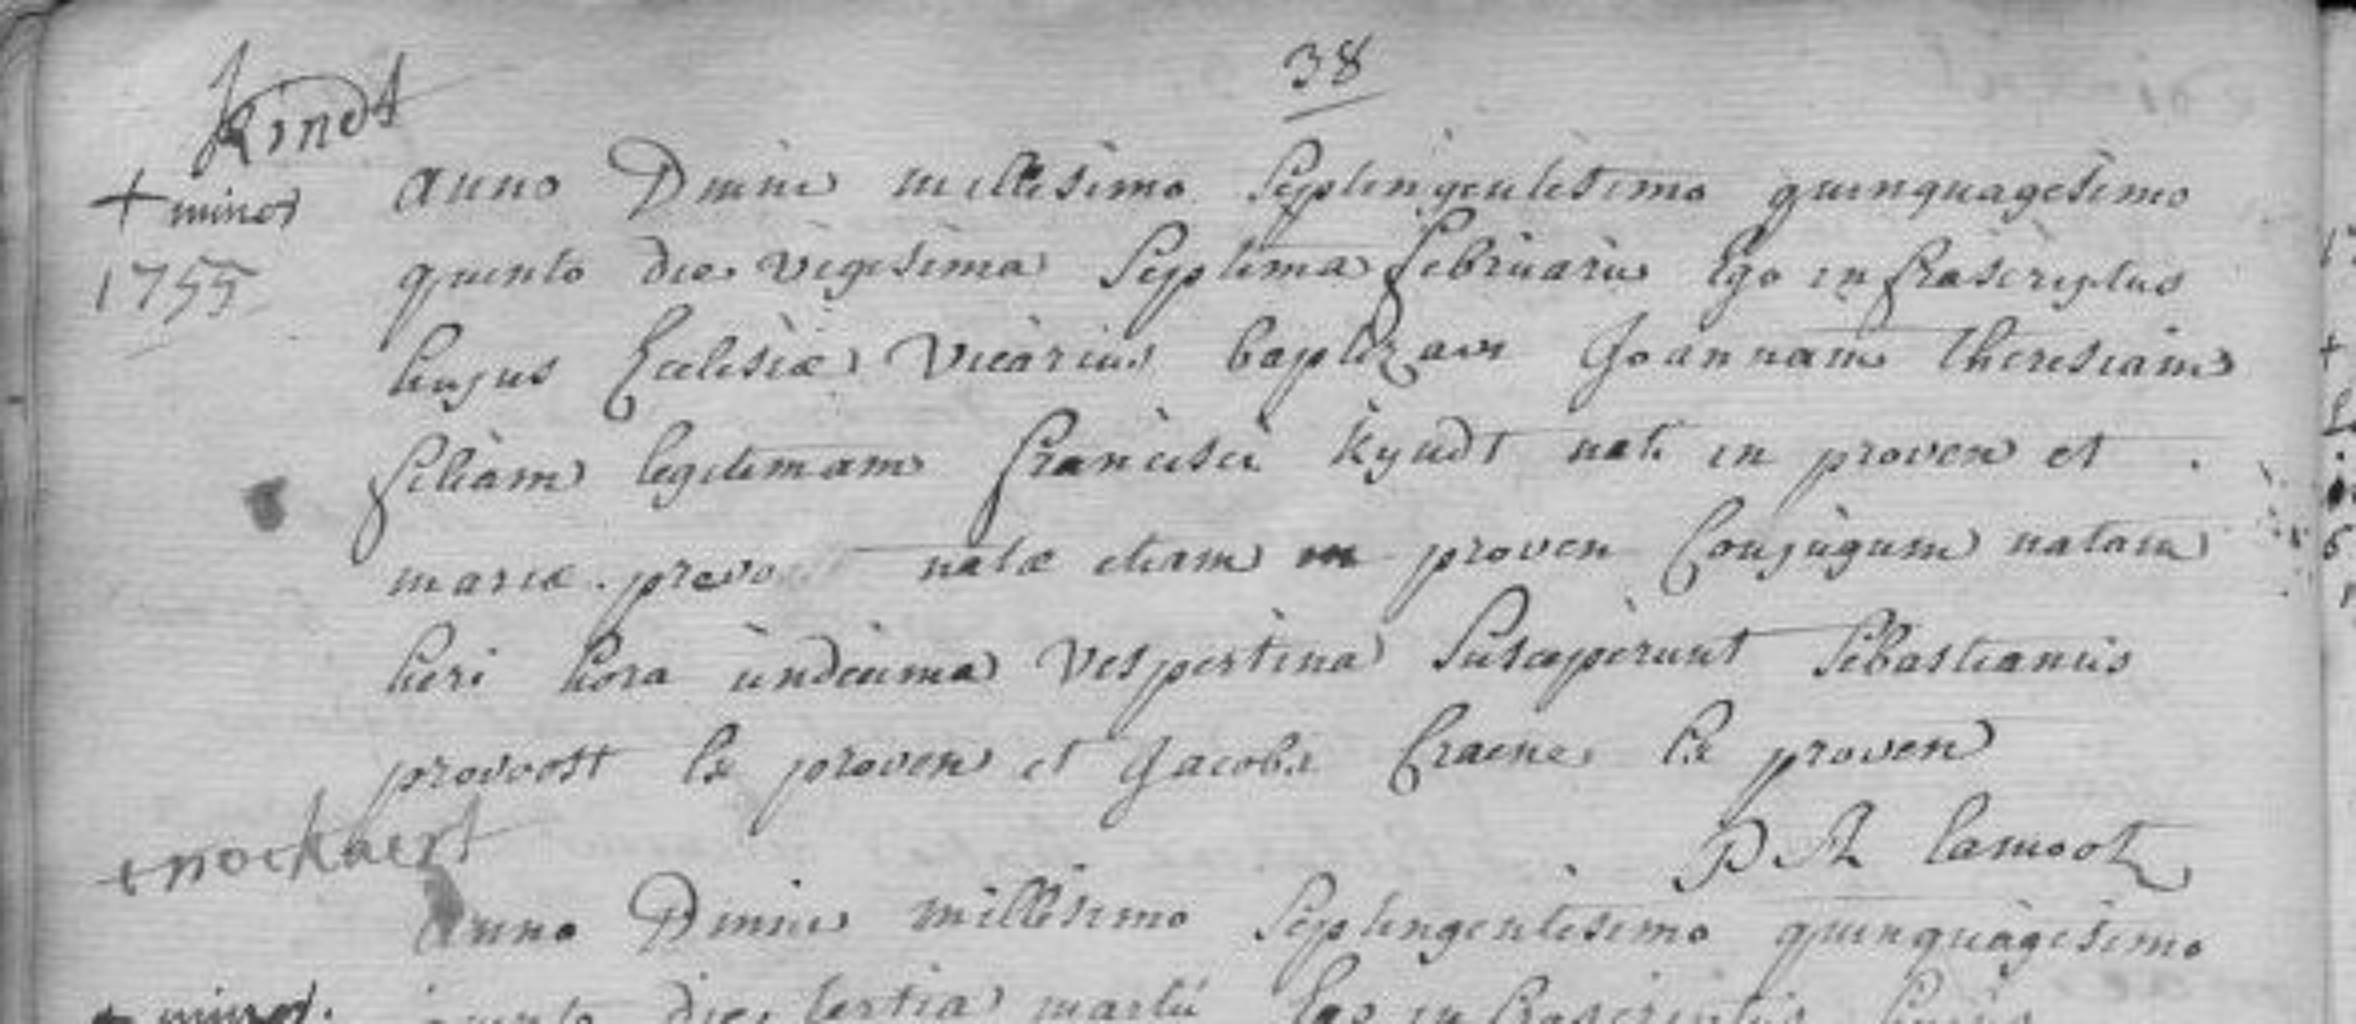 38
Kindt
+ minor
1755
Anno Dmini millesimo Septingentesimo quinquagesimo
quinto die vigesima Septima februarii Ego infrascriptus
hujus Ecclesiæ Vicarius baptizavi Joannam Theresiam
filiam legitimam francisci Kyndt nati in proven et
mariæ provo natæ etiam in proven Conjugum natam
heri hora undecima Vespertina Susceperunt Sebastianus
provoost Ex proven et Jacoba Craene Ex proven
P Lamoot
+ nockaert
Anno Dmini millesimo Septingentesimo quinquagesimo
+ minor.
quinto die tertia martii Ego infrascriptus hujus